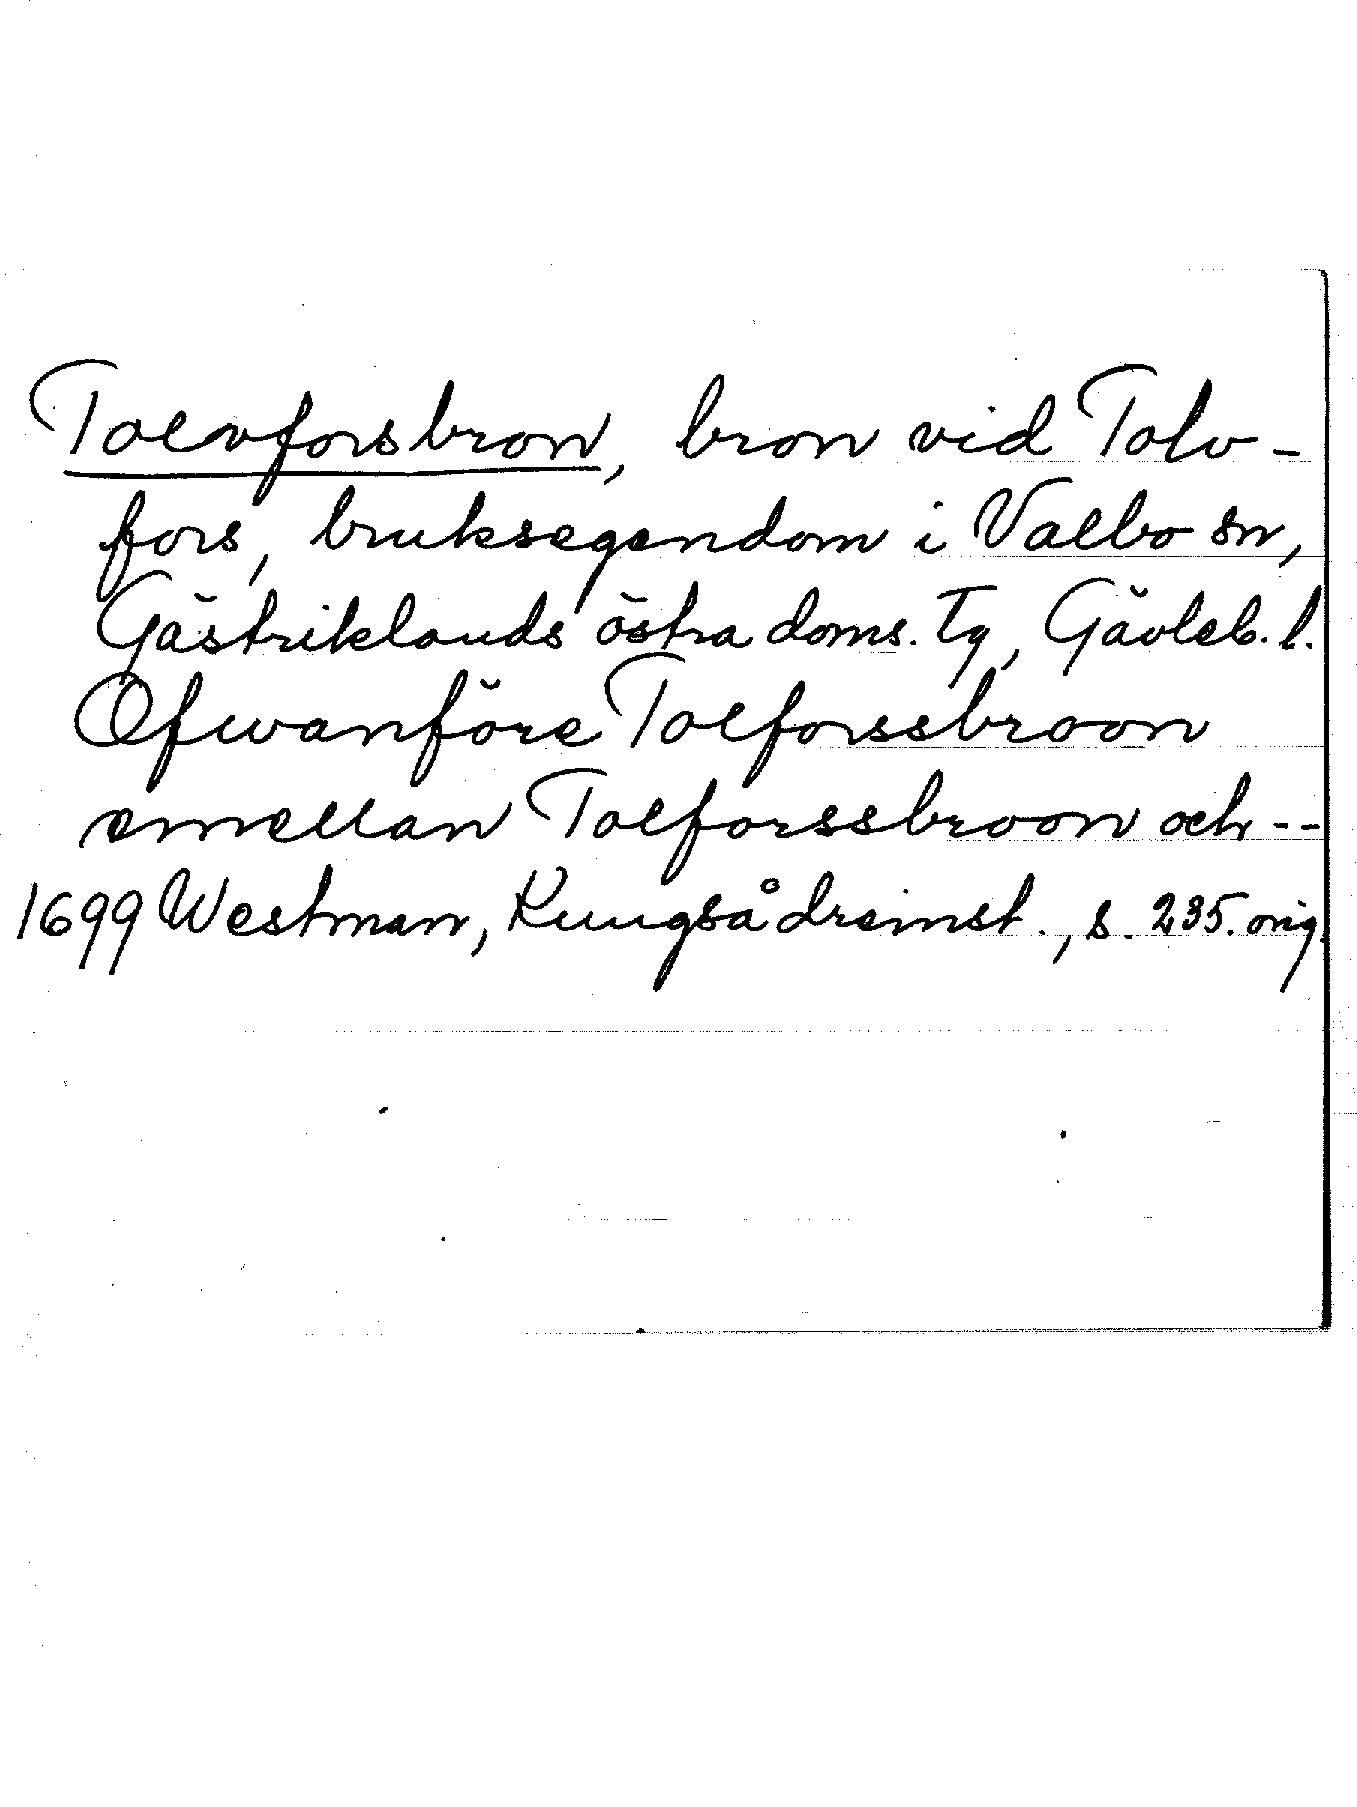 Tolvforsbron, bron vid Tolv-
fors, bruksegendom i Valbo sn,
Gästriklands östra doms. Tg, Gävleb. l.
Ofwanföre Tolforssbroon
emellan Tolforssbroon och --
1699 Westman, Kungsådreinst., s. 235. orig.